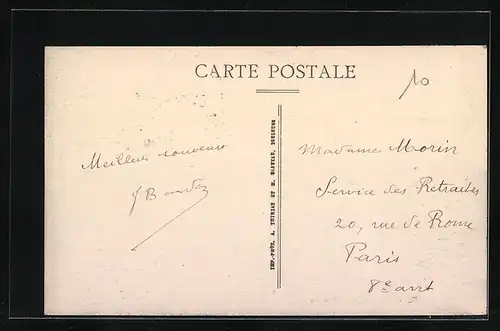 CARTE POSTALE
10
Meilleur souvenir
Madame Morin
Service des Retraites
20, rue de Rome
Paris
8e arrt
IMP.-PHOT. A. THIRIAT ET H. BASUYAU, TOULOUSE